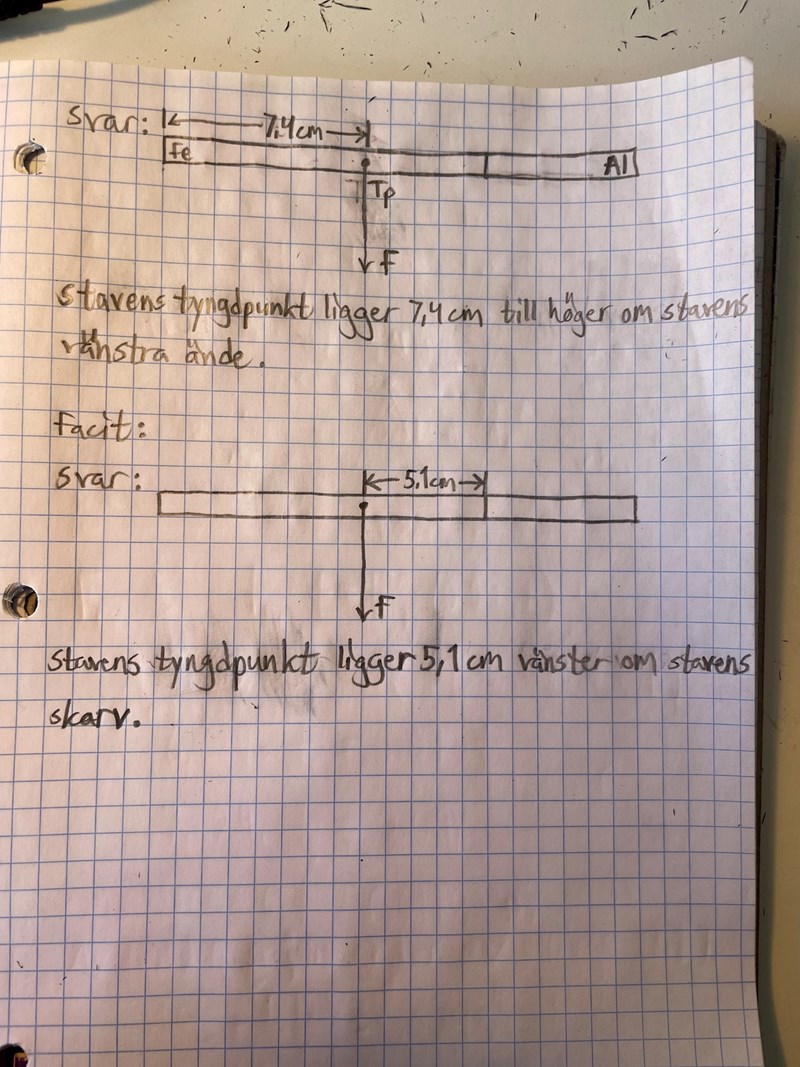 Svar: 7,4cm
Fe Al
Tp
F
Stavens tyngdpunkt ligger 7,4 cm till höger om stavens
vänstra ände.
Facit:
Svar: 5,1cm
F
Stavens tyngdpunkt ligger 5,1 cm vänster om stavens
skarv.